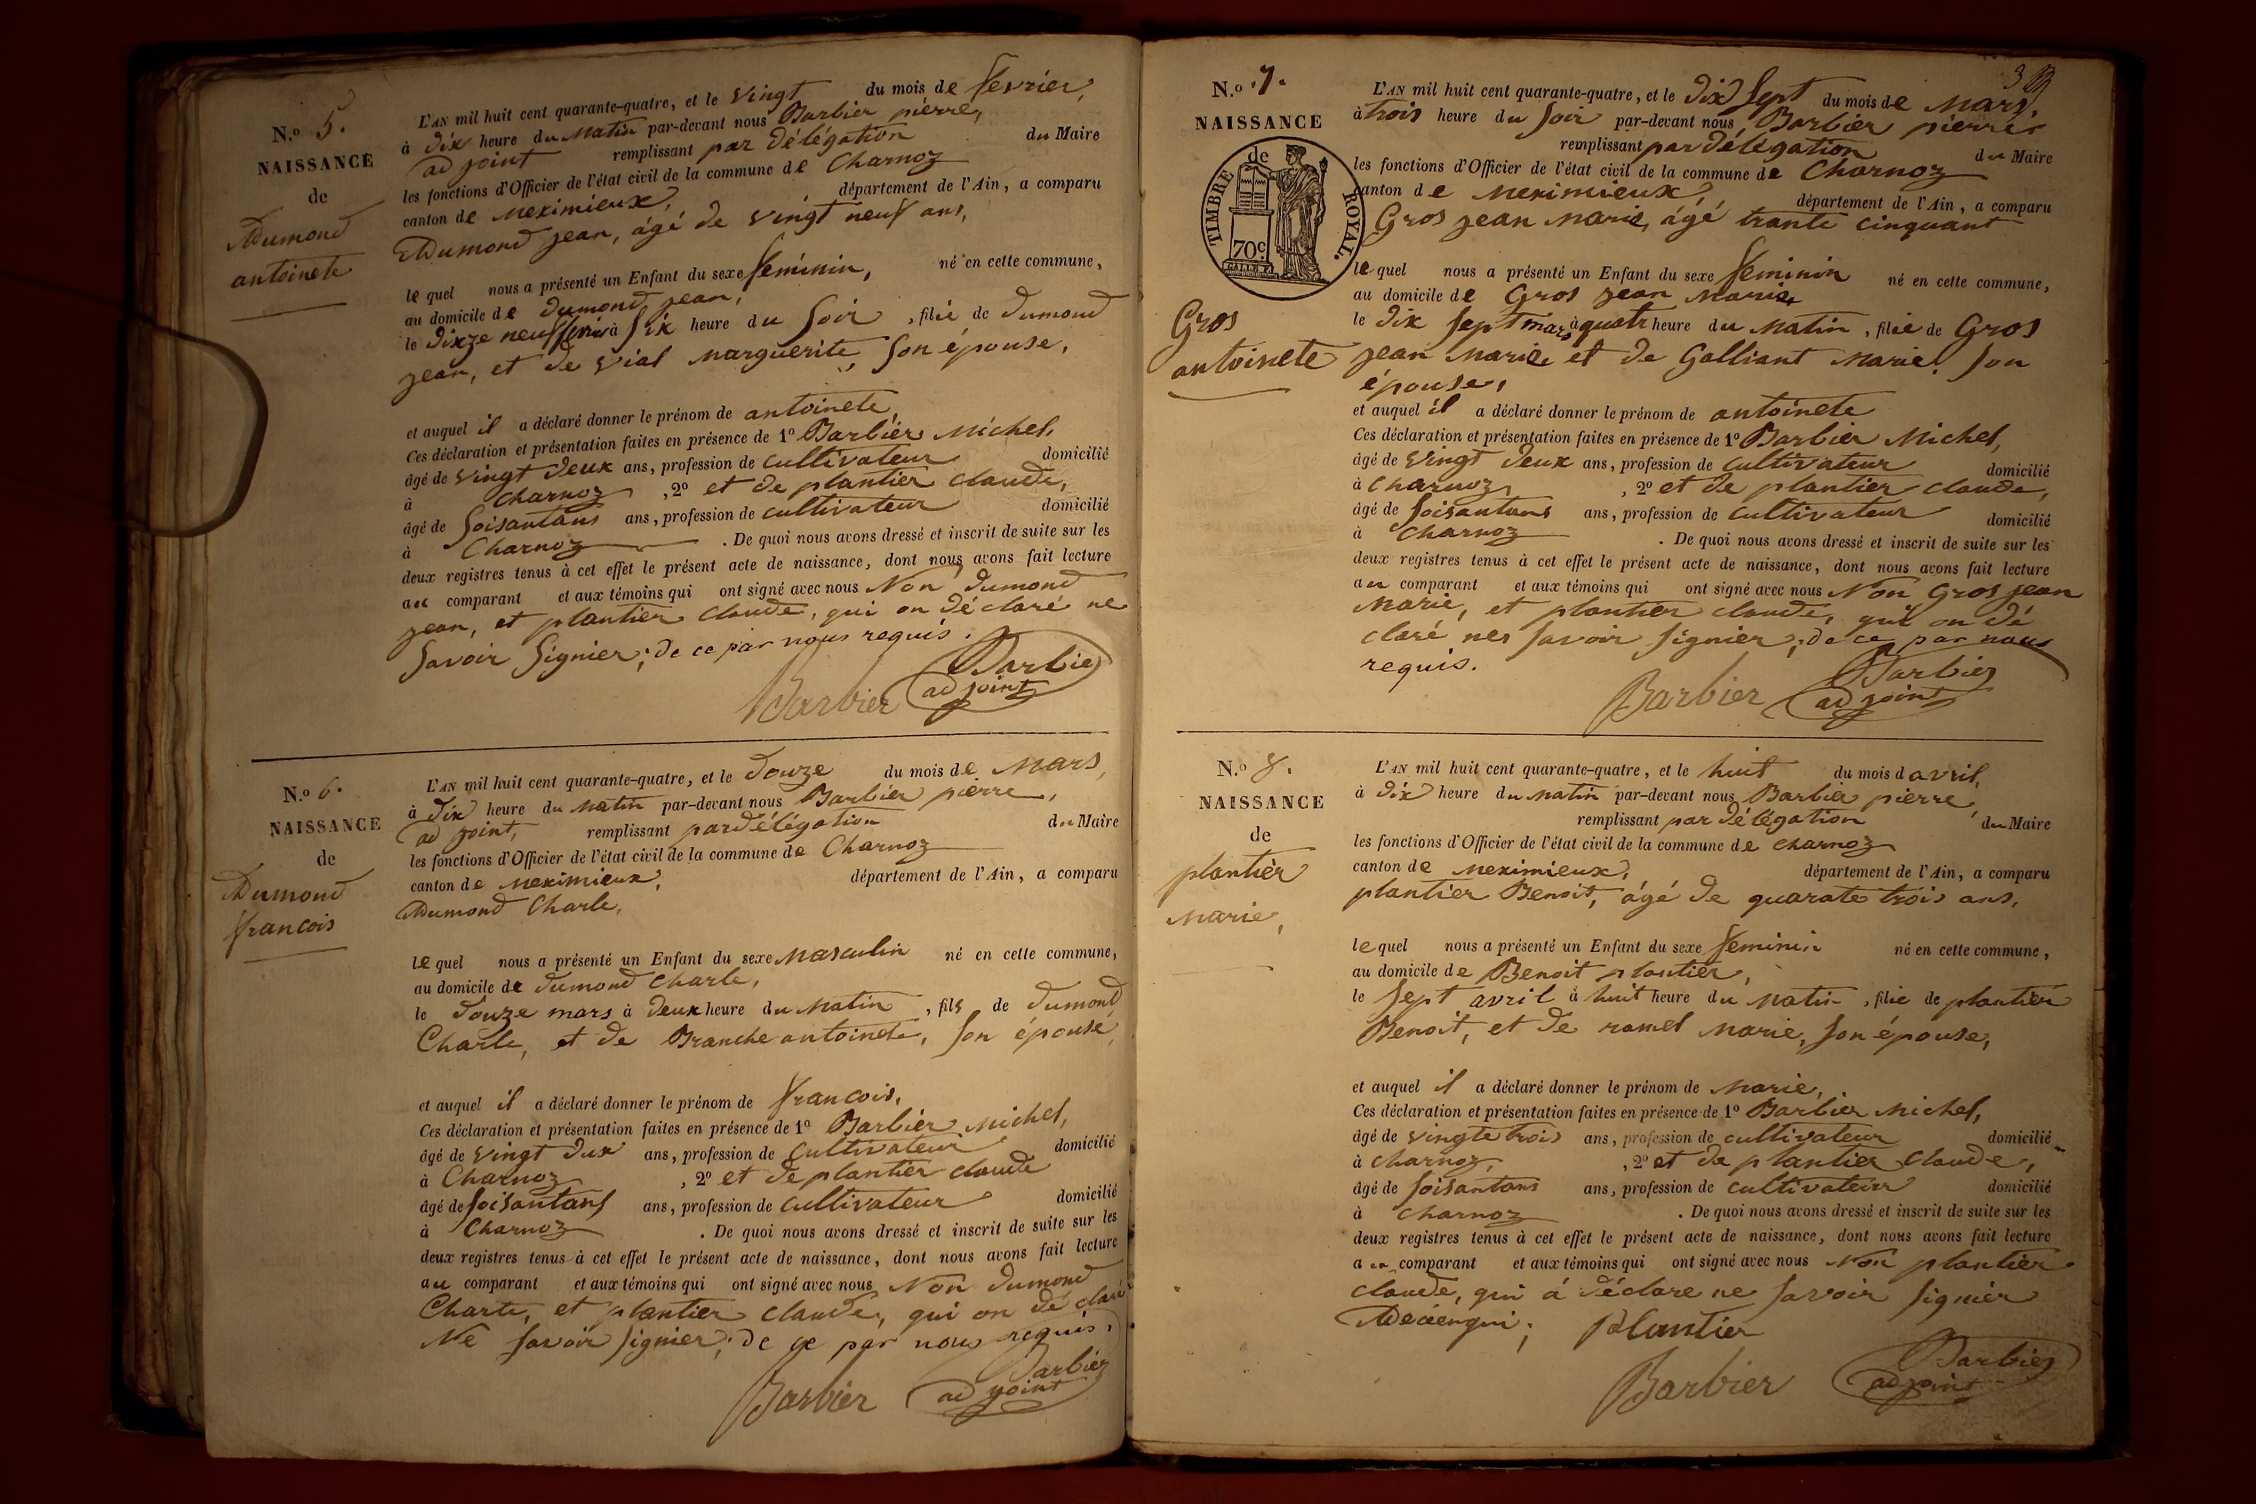 N.o 5.
NAISSANCE
de
Dumond
antoinete
L'AN mil huit cent quarante-quatre, et le vingt du mois de fevrier,
à dix heure du Matin par-devant nous Barbier pierre,
adjoint remplissant par délégation du Maire
les fonctions d'Officier de l'état civil de la commune de Charnoz
canton de Meximieux, département de l'Ain, a comparu
Dumond jean, âgé de vingt neuf ans,
lequel nous a présenté un Enfant du sexe feminin, né en cette commune,
au domicile de Dumond jean,
le dixze neuf à six heure du soir, filie de dumond
jean, et de vial marguerite, son épouse,
et auquel il a déclaré donner le prénom de antoinete,
Ces déclaration et présentation faites en présence de 1o Barbier Michel,
âgé de vingt deux ans, profession de cultivateur domicilié
à Charnoz, 2o et de plantier claude,
âgé de soisantans ans, profession de cultivateur domicilié
à Charnoz. De quoi nous avons dressé et inscrit de suite sur les
deux registres tenus à cet effet le présent acte de naissance, dont nous avons fait lecture
au comparant et aux témoins qui ont signé avec nous Non dumond
jean, et plantier claude, qui on déclaré ne
savoir signier; de ce par nous requis.
Barbier Barbier
adjoint
N.o 6.
NAISSANCE
de
Dumond
francois
L'AN mil huit cent quarante-quatre, et le douze du mois de Mars,
à dix heure du Matin par-devant nous Barbier pierre,
adjoint, remplissant par délégation du Maire
les fonctions d'Officier de l'état civil de la commune de Charnoz
canton de Meximieux, département de l'Ain, a comparu
Dumond Charle,
lequel nous a présenté un Enfant du sexe Masculin né en cette commune,
au domicile de dumond Charle,
le douze mars à deux heure du Matin, fils de dumond
Charle, et de Branche antoinete, son épouse,
et auquel il a déclaré donner le prénom de francois,
Ces déclaration et présentation faites en présence de 1o Barbier Michel,
âgé de vingt dux ans, profession de cultivateur domicilié
à Charnoz, 2o et de plantier claude
âgé de soisantans ans, profession de cultivateur domicilié
à Charnoz. De quoi nous avons dressé et inscrit de suite sur les
deux registres tenus à cet effet le présent acte de naissance, dont nous avons fait lecture
au comparant et aux témoins qui ont signé avec nous Non dumond
Charle, et plantier claude, qui on déclaré
Ne savoir signier; de ce par nous requis.
Barbier Barbier
adjoint
3
N.o 7.
NAISSANCE
de
TIMBRE ROYAL.
70c
Gros
antoinete
L'AN mil huit cent quarante-quatre, et le dix sept du mois de Mars,
à trois heure du soir par-devant nous Barbier pierre
remplissant par délégation du Maire
les fonctions d'Officier de l'état civil de la commune de Charnoz
canton de Meximieux, département de l'Ain, a comparu
Gros jean Marie, âgé trante cinquant
lequel nous a présenté un Enfant du sexe feminin né en cette commune,
au domicile de Gros jean Marie,
le dix sept mars à quatr heure du Matin, filie de Gros
jean Marie et de Galliant Marie, son
épouse,
et auquel il a déclaré donner le prénom de antoinete
Ces déclaration et présentation faites en présence de 1o Barbier Michel,
âgé de vingt deux ans, profession de cultivateur domicilié
à Charnoz, 2o et de plantier claude,
âgé de soisantans ans, profession de cultivateur domicilié
à Charnoz. De quoi nous avons dressé et inscrit de suite sur les
deux registres tenus à cet effet le présent acte de naissance, dont nous avons fait lecture
au comparant et aux témoins qui ont signé avec nous Non Gros jean
Marie, et plantier claude, qui on dé
claré nes savoir signier; de ce par nous
requis.
Barbier Barbier
adjoint
N.o 8.
NAISSANCE
de
plantier
Marie,
L'AN mil huit cent quarante-quatre, et le huit du mois d avril,
à dix heure du Matin par-devant nous Barbier pierre,
remplissant par délégation du Maire
les fonctions d'Officier de l'état civil de la commune de charnoz
canton de Meximieux, département de l'Ain, a comparu
plantier Benoit, âgé de quarate trois ans,
lequel nous a présenté un Enfant du sexe feminin né en cette commune,
au domicile de Benoit plantier,
le sept avril à huit heure du Matin, filie de plantier
Benoit, et de ramel Marie, son épouse,
et auquel il a déclaré donner le prénom de Marie,
Ces déclaration et présentation faites en présence de 1o Barbier Michel,
âgé de vingte trois ans, profession de cultivateur domicilié
à charnoz, 2o et de plantier claude,
âgé de soisantans ans, profession de cultivateur domicilié
à charnoz. De quoi nous avons dressé et inscrit de suite sur les
deux registres tenus à cet effet le présent acte de naissance, dont nous avons fait lecture
au comparant et aux témoins qui ont signé avec nous Non plantier
claude, qui á déclare ne savoir signier
plantier
Barbier Barbier
adjoint